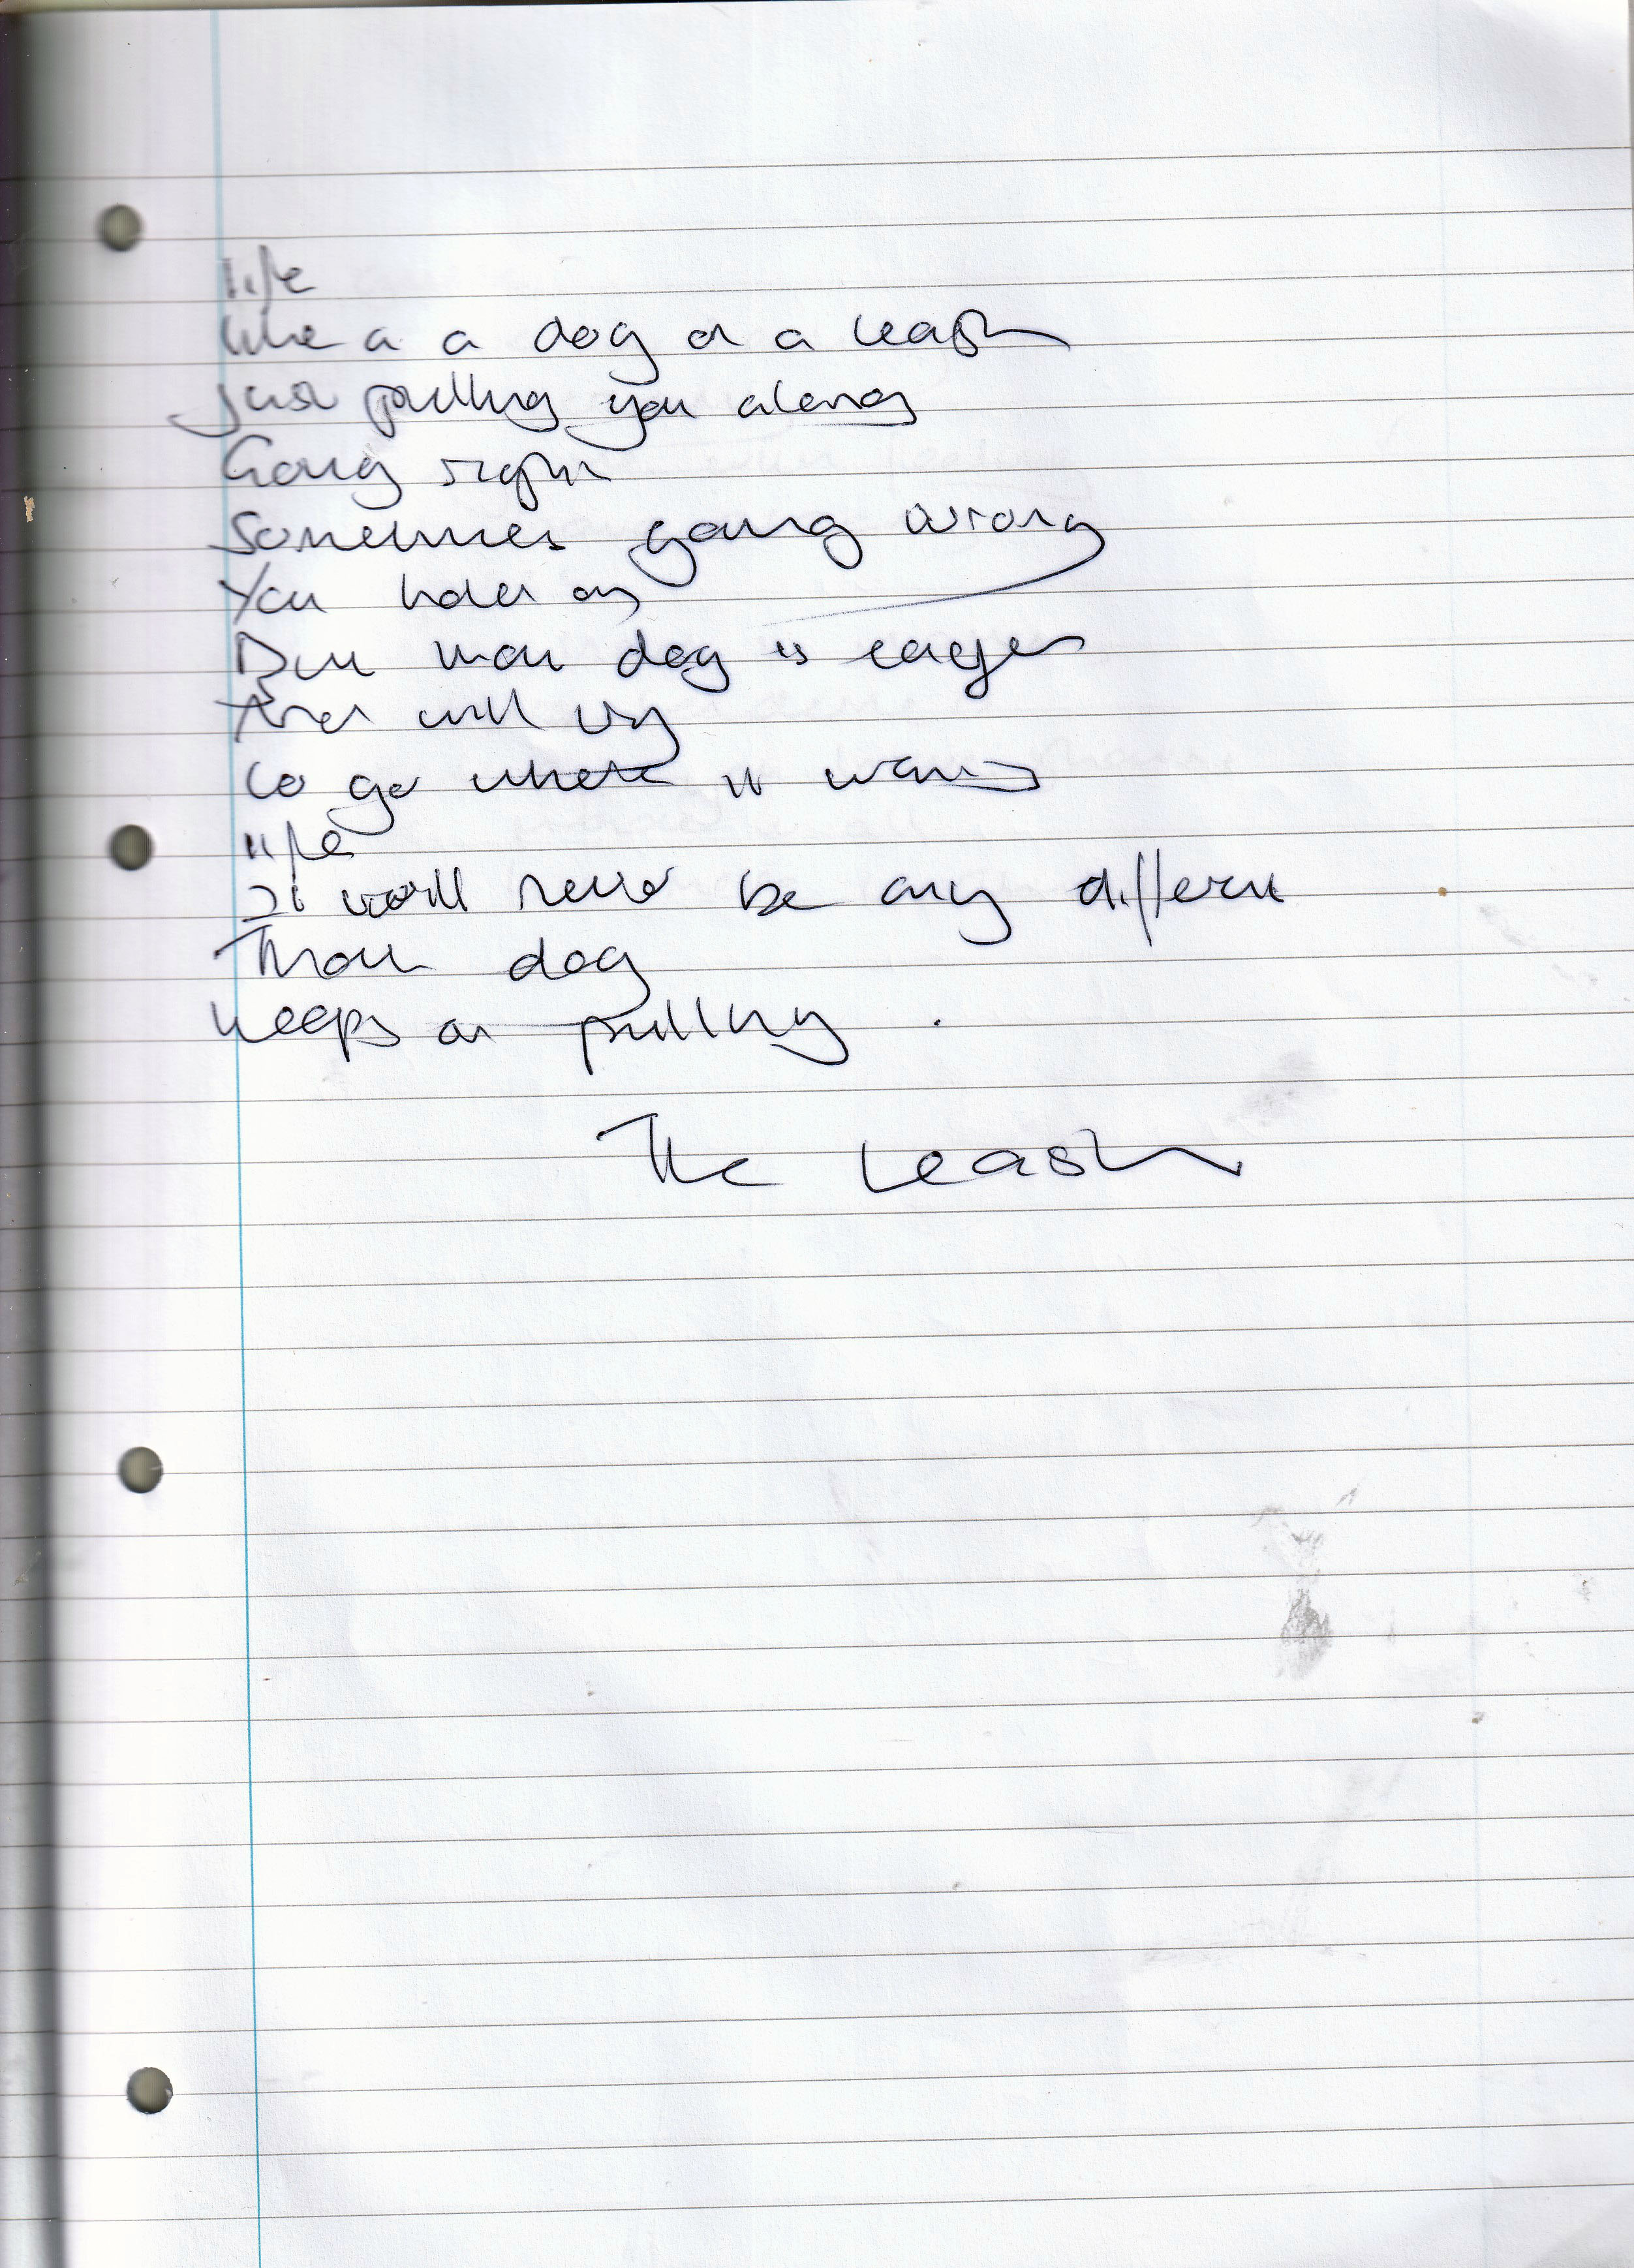 life
like a a dog on a leash
just pulling you along
Going right
Sometimes going wrong
You hold on
But that dog is eager
And will try
to go where it wants
life
It will never be any different
That dog
keeps on pulling.
The Leash